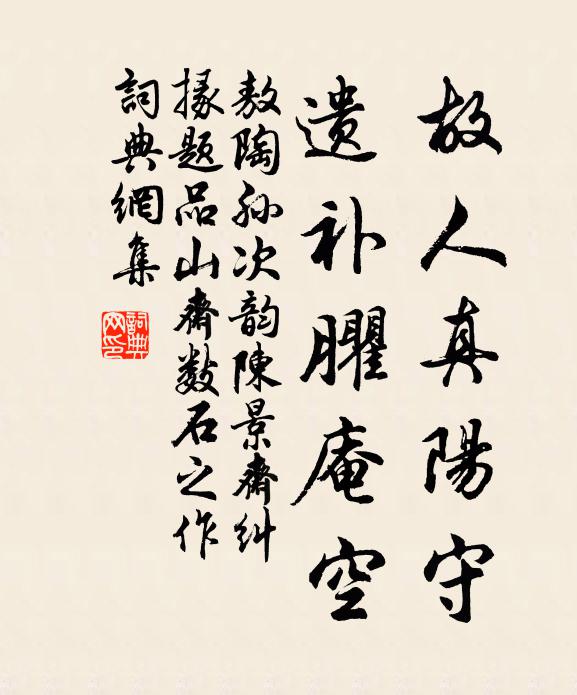 故人真陽守
遗补臞庵空
敖陶孙次韵陳景齋糾
掾题品山齋数石之作
詞典網集
詞典
网印